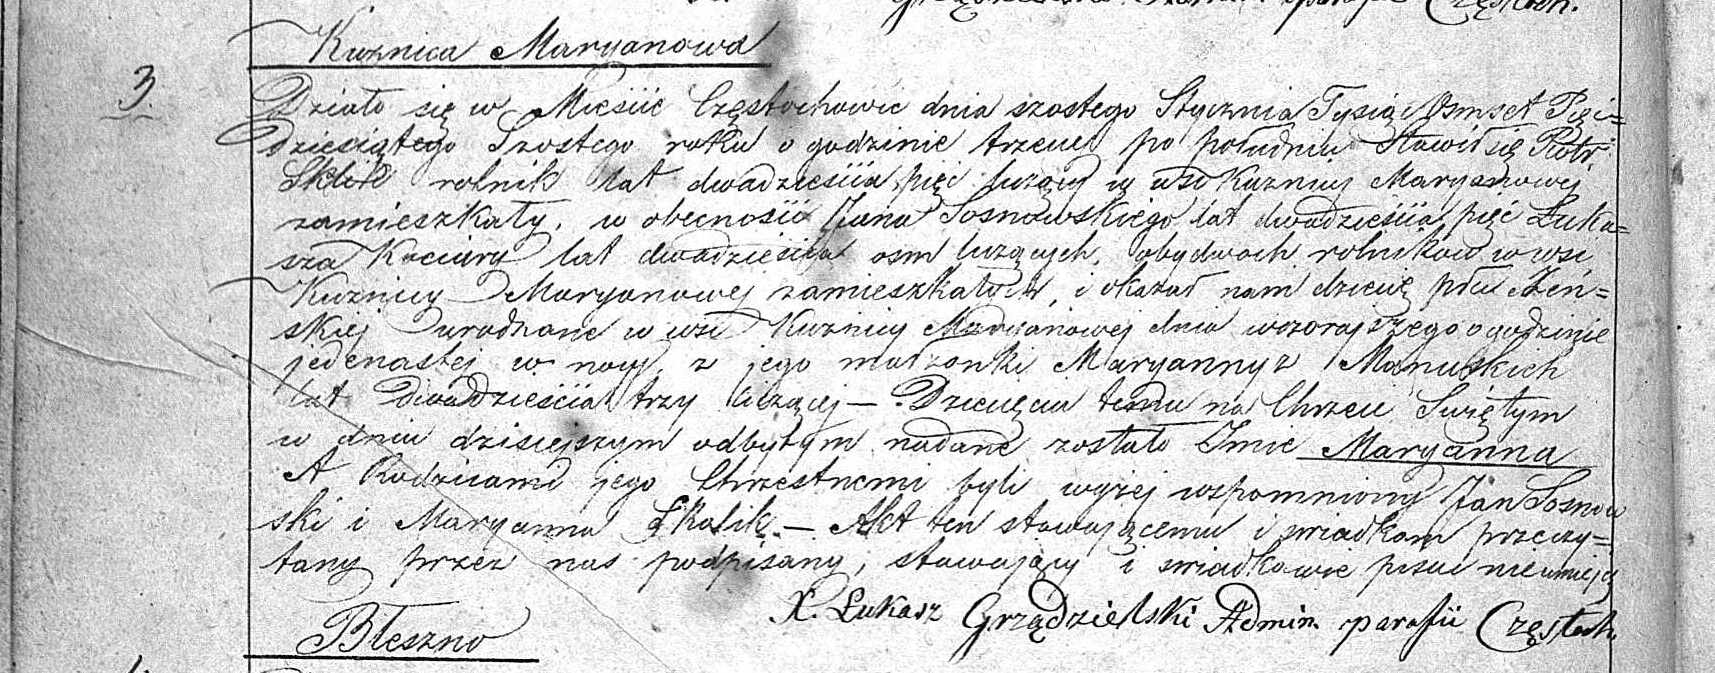 parafii Częstoch.
Kuznica Maryanowa
3.
Działo się w Mieście Częstochowie dnia szostego Stycznia Tysiąc Osmset Pięć=
dziesiątego Szostego roku o godzinie trzeciej po południu Stawił się Piotr
rolnik lat dwadzieścia pięć liczący w wsi Kuznicy Maryanowej
zamieszkały, w obecności Jana Sosnowskiego lat dwadzieścia pięć Łuka=
sza Kociury lat dwadzieścia osm liczących, obydwoch rolników w wsi
Kuznicy Maryanowej zamieszkałych, i okazał nam dziecię płci Żeń=
skiej urodzone w wsi Kuznicy Maryanowej dnia wczorajszego o godzinie
jedenastej w nocy, z jego małżonki Maryanny z Mańskich
lat dwadzieścia trzy liczącej — Dziecięciu temu na Chrzcie Świętym
w dniu dzisiejszym odbytym nadane zostało Imie Maryanna
A Rodzicami jego Chrzestnemi byli wyżej wspomniony Jan Sosnow
ski i Maryanna Skalik. — Akt ten stawającemu i świadkom przeczy=
tany przez nas podpisany, stawający i świadkowie pisać nieumieją
X. Łukasz Grządzielski Admin. parafii Częstoch.
Błeszno